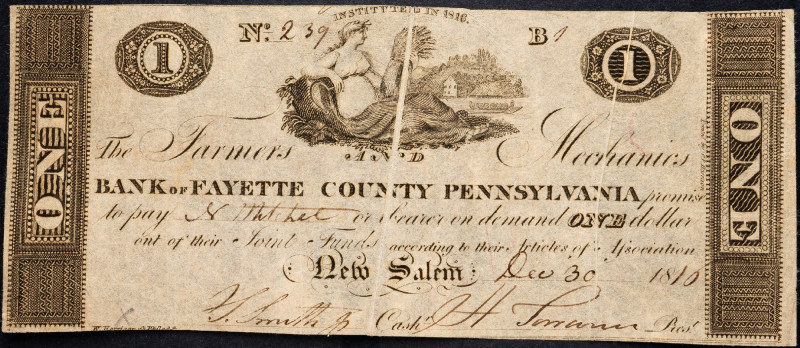 INSTITUTED IN 1816.
No. 239 B 1
1 1
ONE
ONE
The Farmers AND Mechanics
BANK OF FAYETTE COUNTY PENNSYLVANIA, promise
to pay N Mitchel or bearer on demand ONE dollar
out of their Joint Funds according to their Articles of Association
New Salem Dec 30 1816
Smith Cashr. H Pres.t